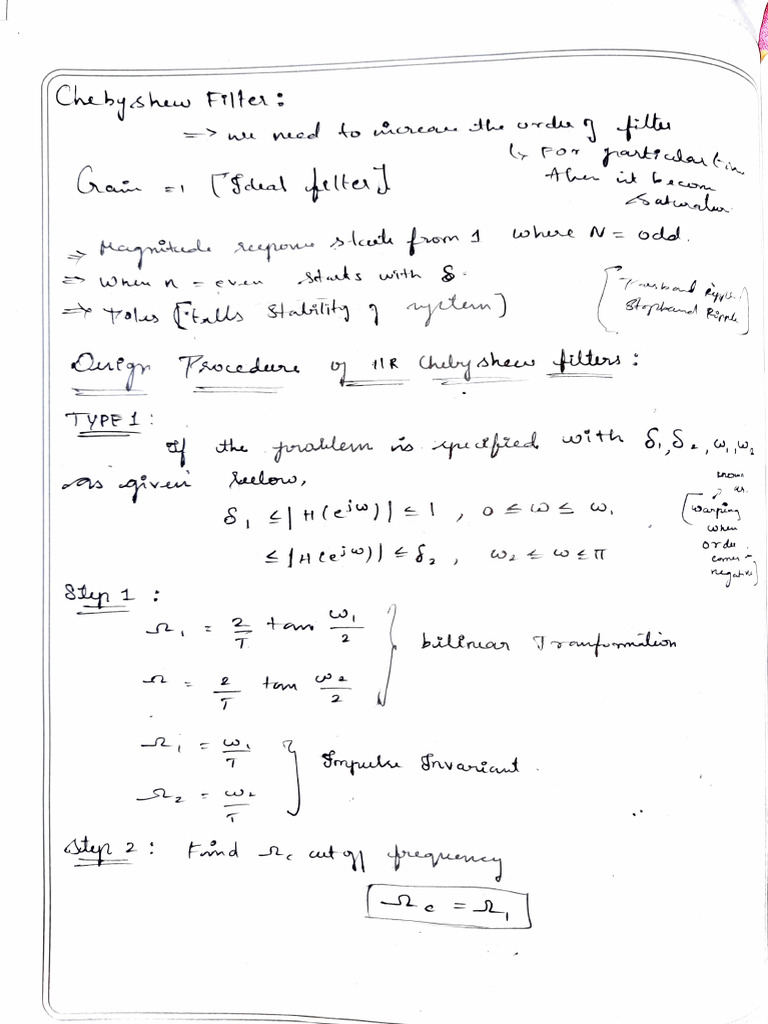 Chebyshew Filter:
=> we need to increase the order of filter
↳ For particular time
then it becom
saturation
Gain = 1 [Ideal filter]
=> Magnitude response starts from 1 where N = odd.
=> when n = even starts with δ.
=> Poles [Tells Stability of system]
[Passband Ripple.
Stopband Ripple]
Design Procedure of IIR Chebyshew filters:
TYPE 1:
If the problem is specified with δ₁, δ₂, ω₁, ω₂
as given below,
δ₁ ≤ |H(e^jω)| ≤ 1 , 0 ≤ ω ≤ ω₁
≤ |H(e^jω)| ≤ δ₂ , ω₂ ≤ ω ≤ π
known
as
[warping
when
order
comes in
negative]
Step 1 :
Ω₁ = 2/T tan ω₁/2
Ω = 2/T tan ω₂/2
} bilinear Transformation
Ω₁ = ω₁/T
Ω₂ = ω₂/T
} Impulse Invariant.
Step 2 : Find Ωc cut off frequency
Ωc = Ω₁